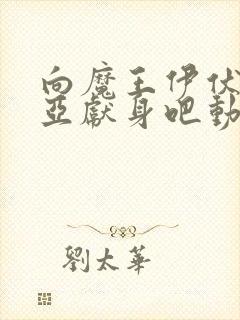 向魔王伊伏
亞獻身吧動
劉太華